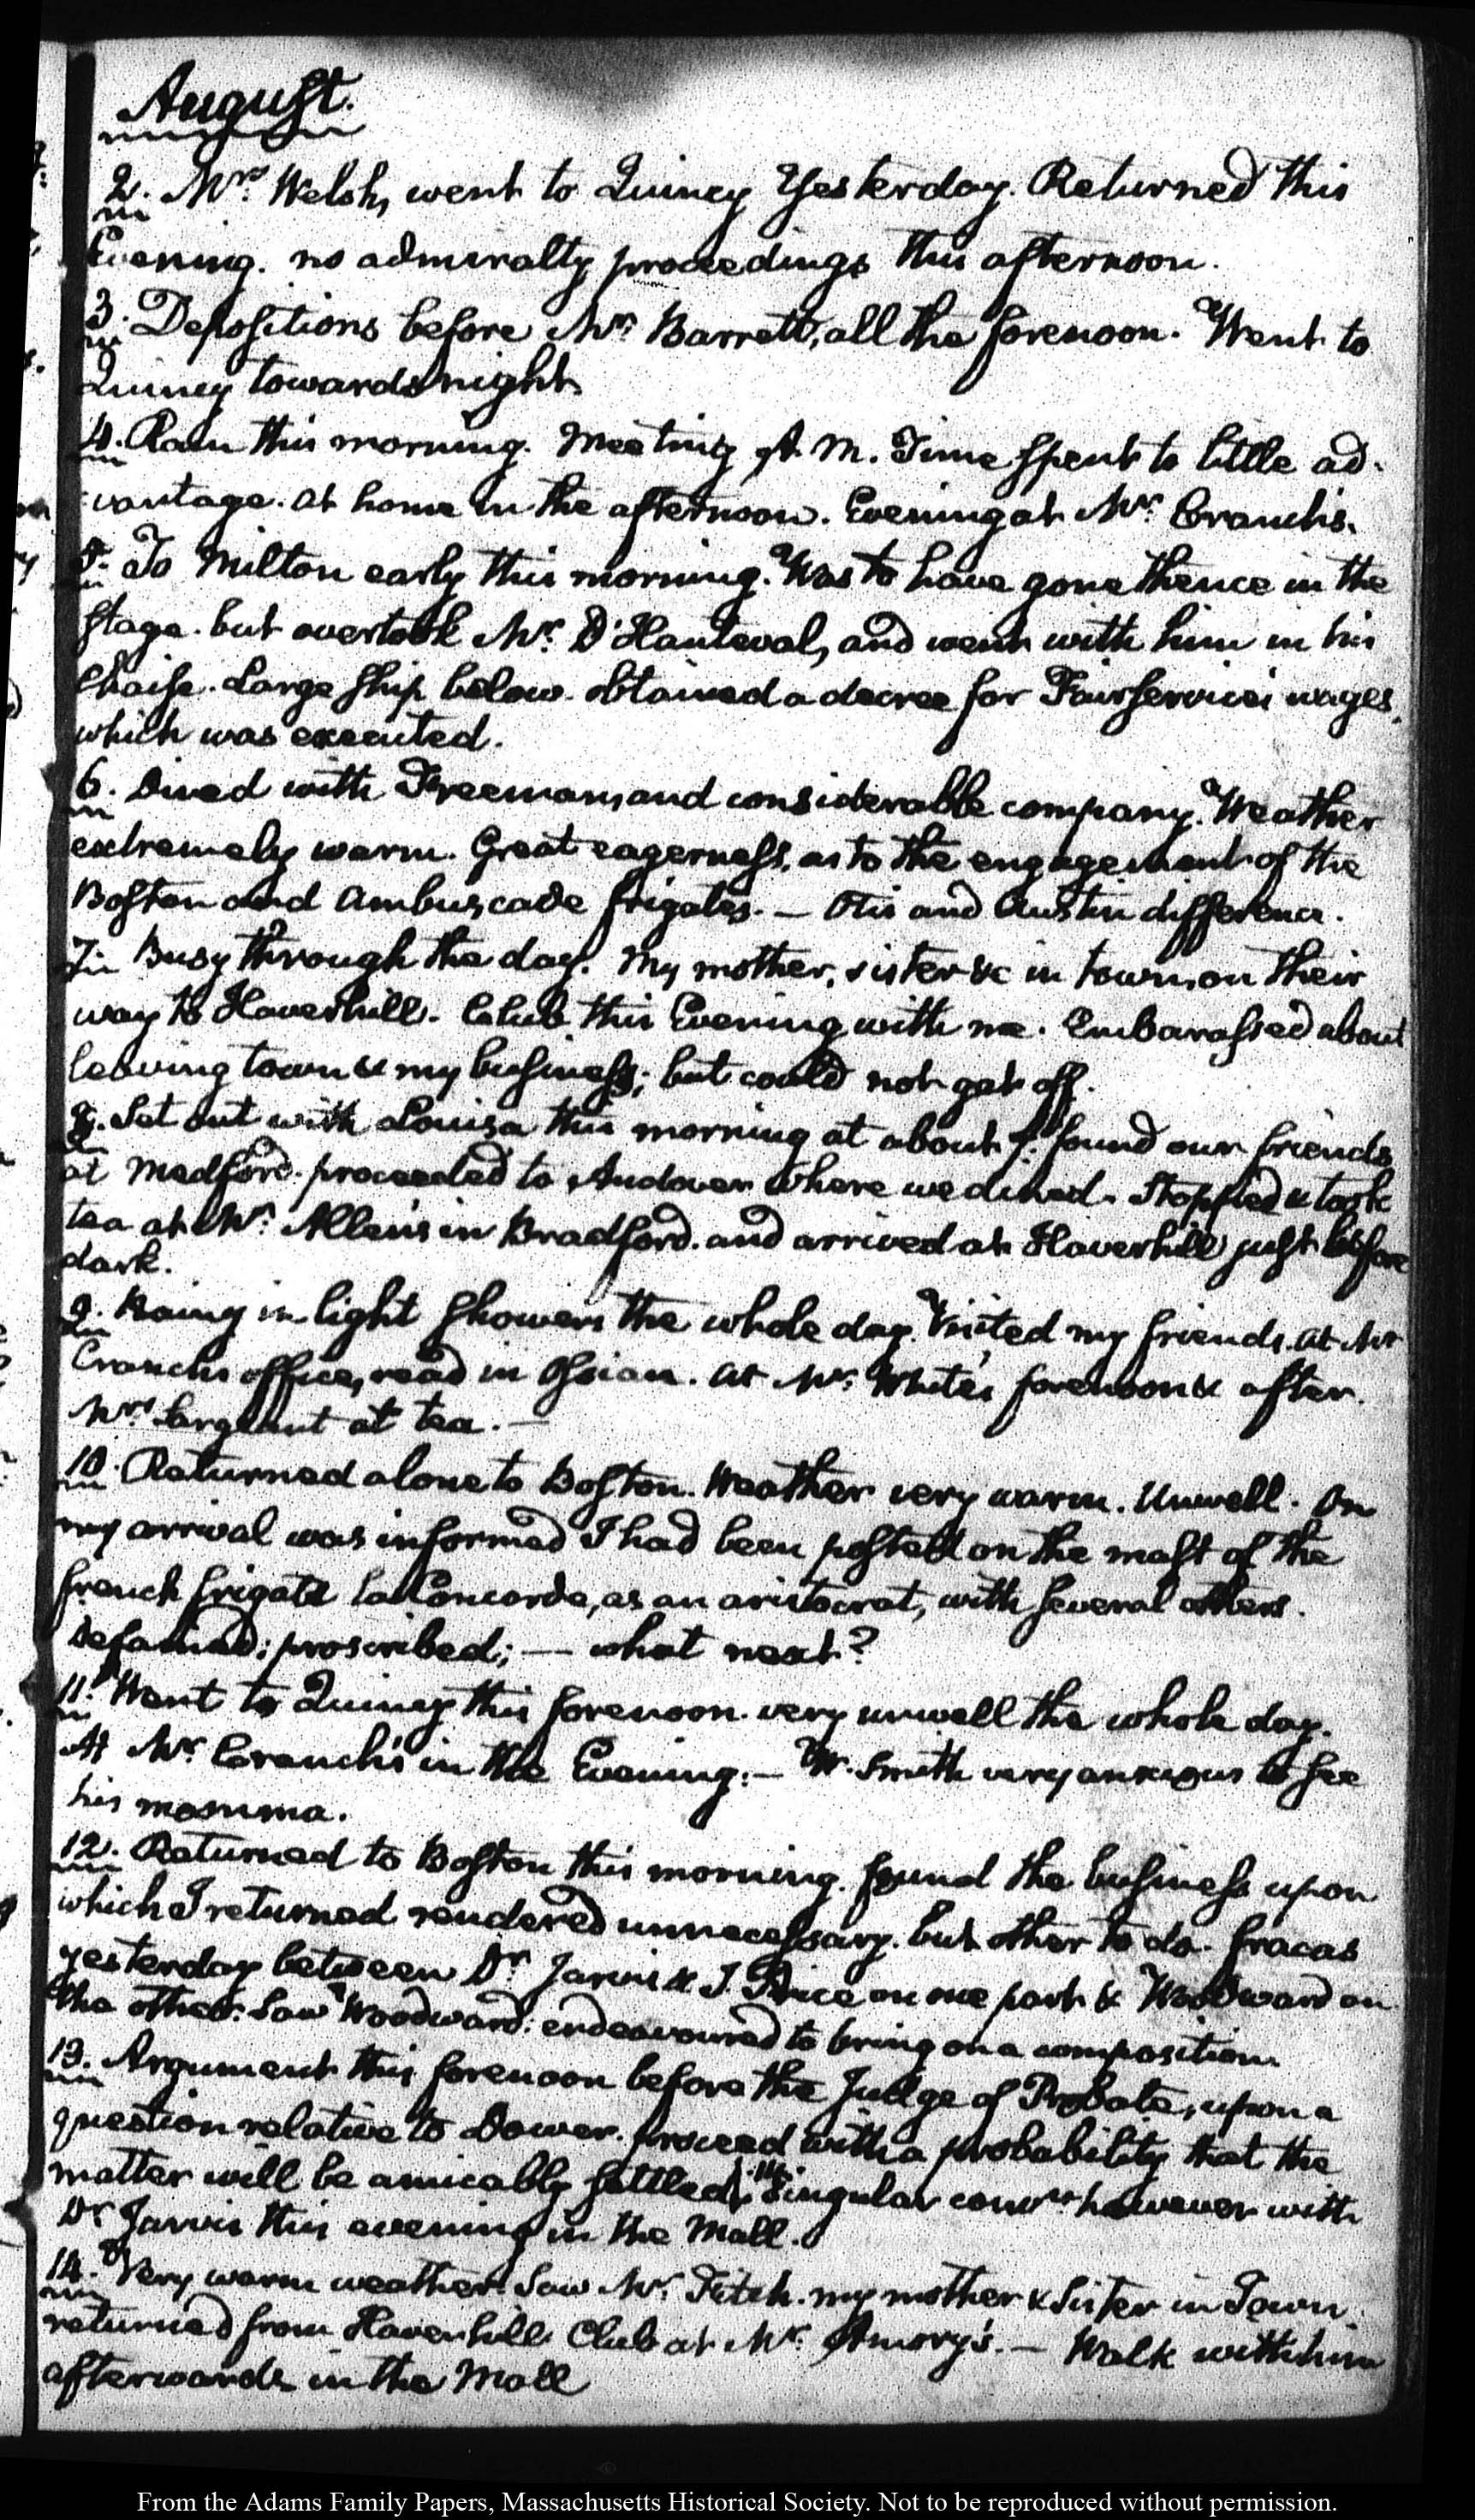 August.
2. Mrs. Welsh, went to Quincy Yesterday. Returned this
Evening. no admiralty proceedings this afternoon.
3. Depositions before Mr. Barrett, all the forenoon. Went to
Quincy towards night.
4. Rain this morning. Meeting A. M. Time spent to little ad-
vantage. at home in the afternoon. Evening at Mr. Cranch's.
5. To Milton early this morning. Was to have gone thence in the
stage. but overtook Mr. D'Hauteval, and went with him in his
Chaise. Large ship below. obtained a decree for Fairservice's wages,
which was executed.
6. Dined with Freeman, and considerable company. Weather
extremely warm. Great eagerness, as to the engagement of the
Boston and Ambuscade frigates. — Otis and Austin difference.
7. Busy through the day. My mother, sister &c in town, on their
way to Haverhill. Club this Evening with me. Embarassed about
leaving town & my business; but could not get off.
8. Set out with Louisa this morning at about 7. found our friends
at Medford. proceeded to Andover where we dined. Stopped & took
tea at Mr. Allen's in Bradford. and arrived at Haverhill just before
dark.
9. Rainy in light showers the whole day. Visited my friends. at Mr
Cranch's office, read in Ossian. at Mr. White's forenoon & after.
Mrs. Sargeant at tea. —
10. Returned alone to Boston. Weather very warm. Unwell. On
my arrival was informed I had been posted on the mast of the
french frigate la Concorde, as an aristocrat, with several others.
Defamed; proscribed; — what next?
11. Went to Quincy this forenoon. very unwell the whole day.
At Mr. Cranch's in the Evening. — W. Smith very anxious to see
his mamma.
12. Returned to Boston this morning. found the business upon
which I returned rendered unnecessary. but other to do. fracas
yesterday between Dr. Jarvis & J. Price on one part & Woodward on
the other. Saw Woodward: endeavoured to bring on a composition.
13. Argument this forenoon before the Judge of Probate, upon a
question relative to Dower. proceed with a probability that the
matter will be amicably settled. Singular however with
Dr Jarvis this evening in the Mall.
14. Very warm weather. Saw Mr. Fitch. my mother & Sister in Town.
returned from Haverhill. Club at Mr. Amory's. — Walk with him
afterwards in the Mall
From the Adams Family Papers, Massachusetts Historical Society. Not to be reproduced without permission.